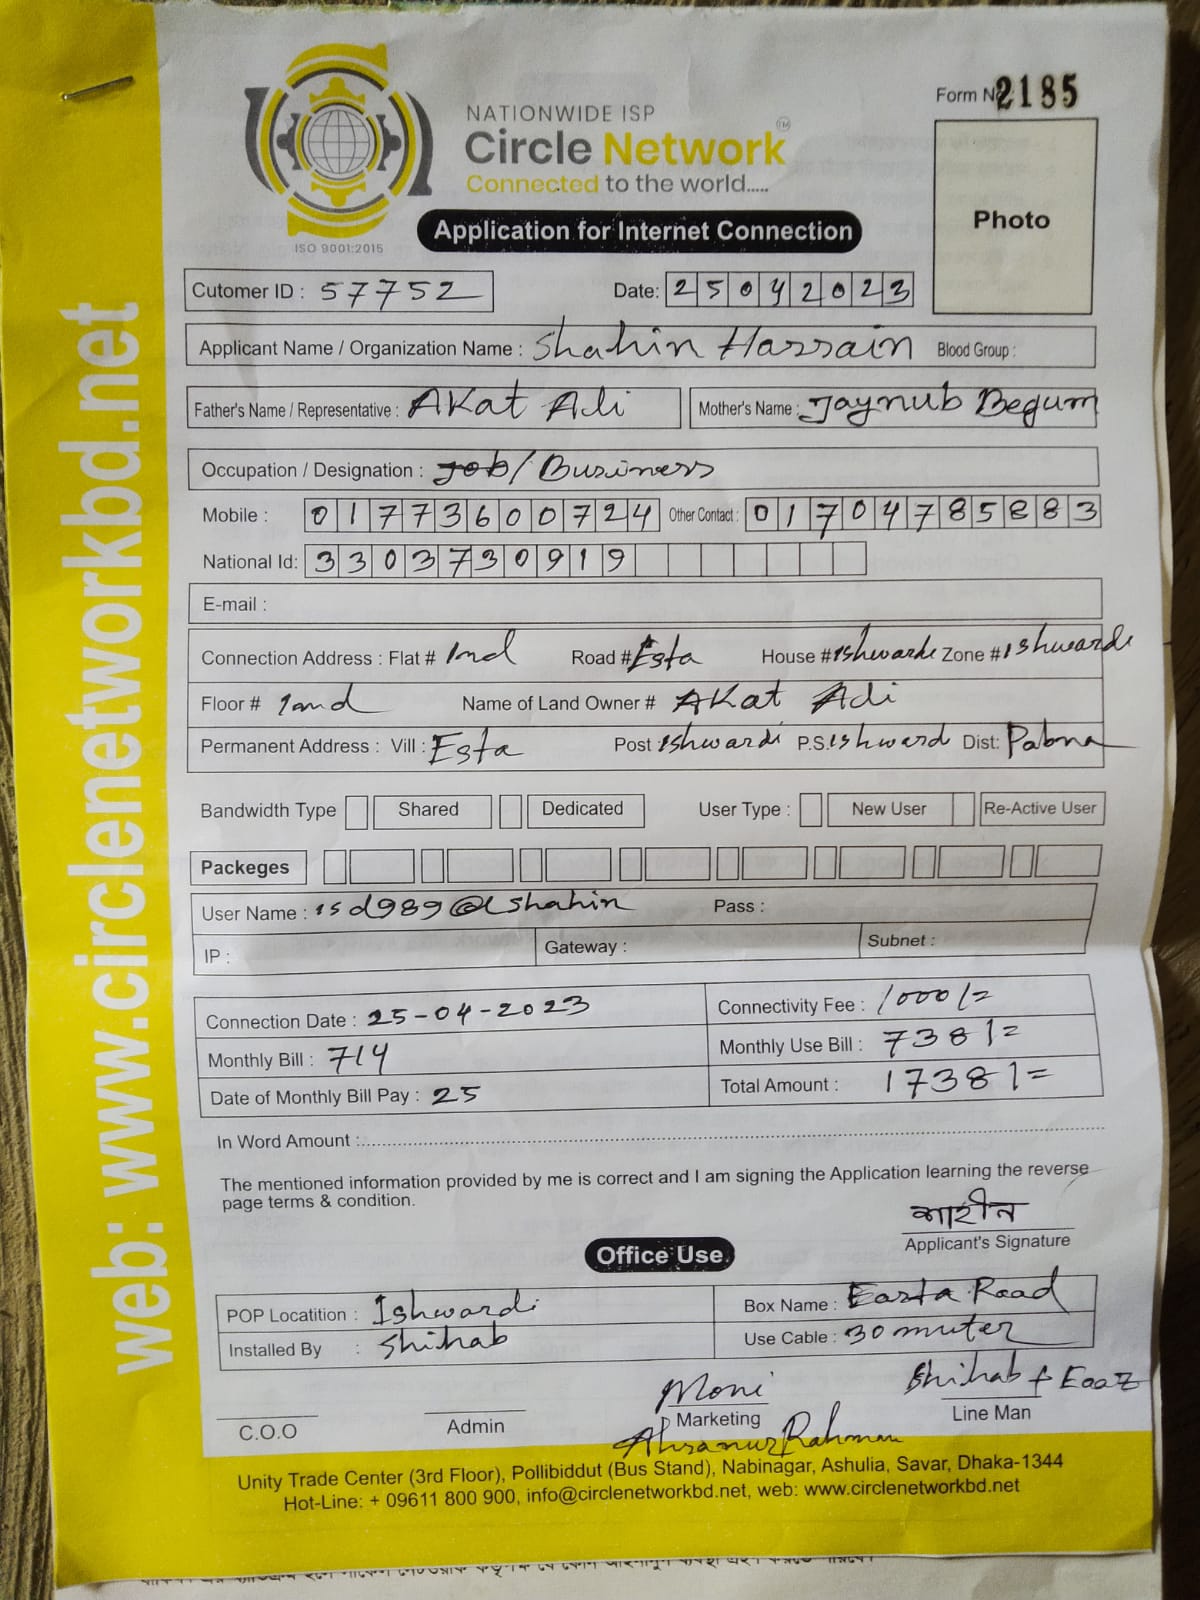 Form No 2185
NATIONWIDE ISP
Circle Network TM
Connected to the world.....
ISO 9001:2015
Application for Internet Connection
Photo
Cutomer ID : 57752 Date: 25042023
Applicant Name / Organization Name : Shahin Hassain Blood Group :
Father's Name / Representative : AKat Ali Mother's Name : Jaynub Begum
Occupation / Designation : Job/ Business
Mobile : 01773600724 Other Contact : 01704785883
National Id: 3303730919
E-mail :
Connection Address : Flat # 1nd Road # Esta House # ishwardi Zone # ishwardi
Floor # 1nd Name of Land Owner # AKat Ali
Permanent Address : Vill : Esta Post ishwardi P.S. ishward Dist: Pabna
Bandwidth Type Shared Dedicated User Type : New User Re-Active User
Packeges
User Name : isd989@shahin Pass :
IP : Gateway : Subnet :
Connection Date : 25-04-2023 Connectivity Fee : 1000/=
Monthly Bill : 714 Monthly Use Bill : 738/=
Date of Monthly Bill Pay : 25 Total Amount : 1738/=
In Word Amount :
The mentioned information provided by me is correct and I am signing the Application learning the reverse
page terms & condition.
শাহীন
Applicant's Signature
Office Use
POP Locatition : Ishwardi Box Name : Easta Road
Installed By : Shihab Use Cable : 30 muter
Moni Shihab + Eaaz
C.O.O Admin Marketing Line Man
Ahsanur Rahman
Unity Trade Center (3rd Floor), Pollibiddut (Bus Stand), Nabinagar, Ashulia, Savar, Dhaka-1344
Hot-Line: + 09611 800 900, info@circlenetworkbd.net, web: www.circlenetworkbd.net
web: www.circlenetworkbd.net